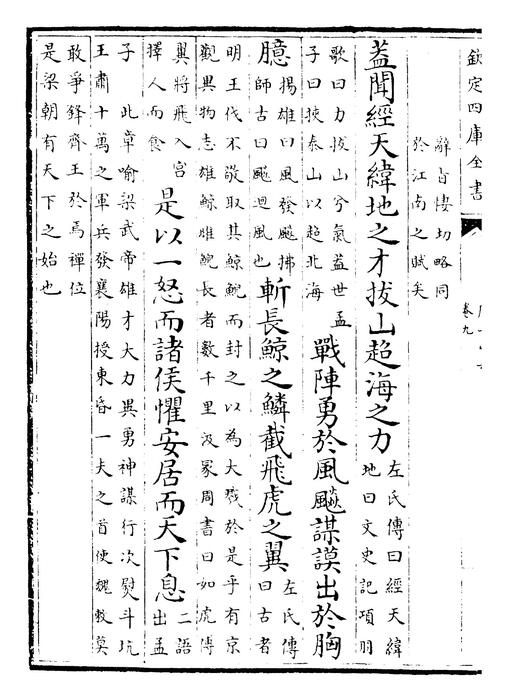 欽定四庫全書
卷九
辭旨悽切略同
於江南之賦矣
蓋聞經天緯地之才拔山超海之力
左氏傳曰經天緯
地曰文史記項羽
歌曰力拔山兮氣蓋世孟
子曰挾泰山以超北海
戰陣勇於風飈謀謨出於胸
臆
揚雄曰風發飈拂
師古曰飈迴風也
斬長鯨之鱗截飛虎之翼
左氏傳
曰古者
明王伐不敬取其鯨鯢而封之以為大戮於是乎有京
觀異物志雄鯨雌鯢長者數千里汲冡周書曰如虎傅
翼將飛入宫
擇人而食
是以一怒而諸侯懼安居而天下息
二語
出孟
子 此章喻梁武帝雄才大力異勇神謀行次熨斗坑
王肅十萬之軍兵發襄陽授東昏一夫之首使魏救莫
敢爭鋒齊王於焉禪位
是梁朝有天下之始也